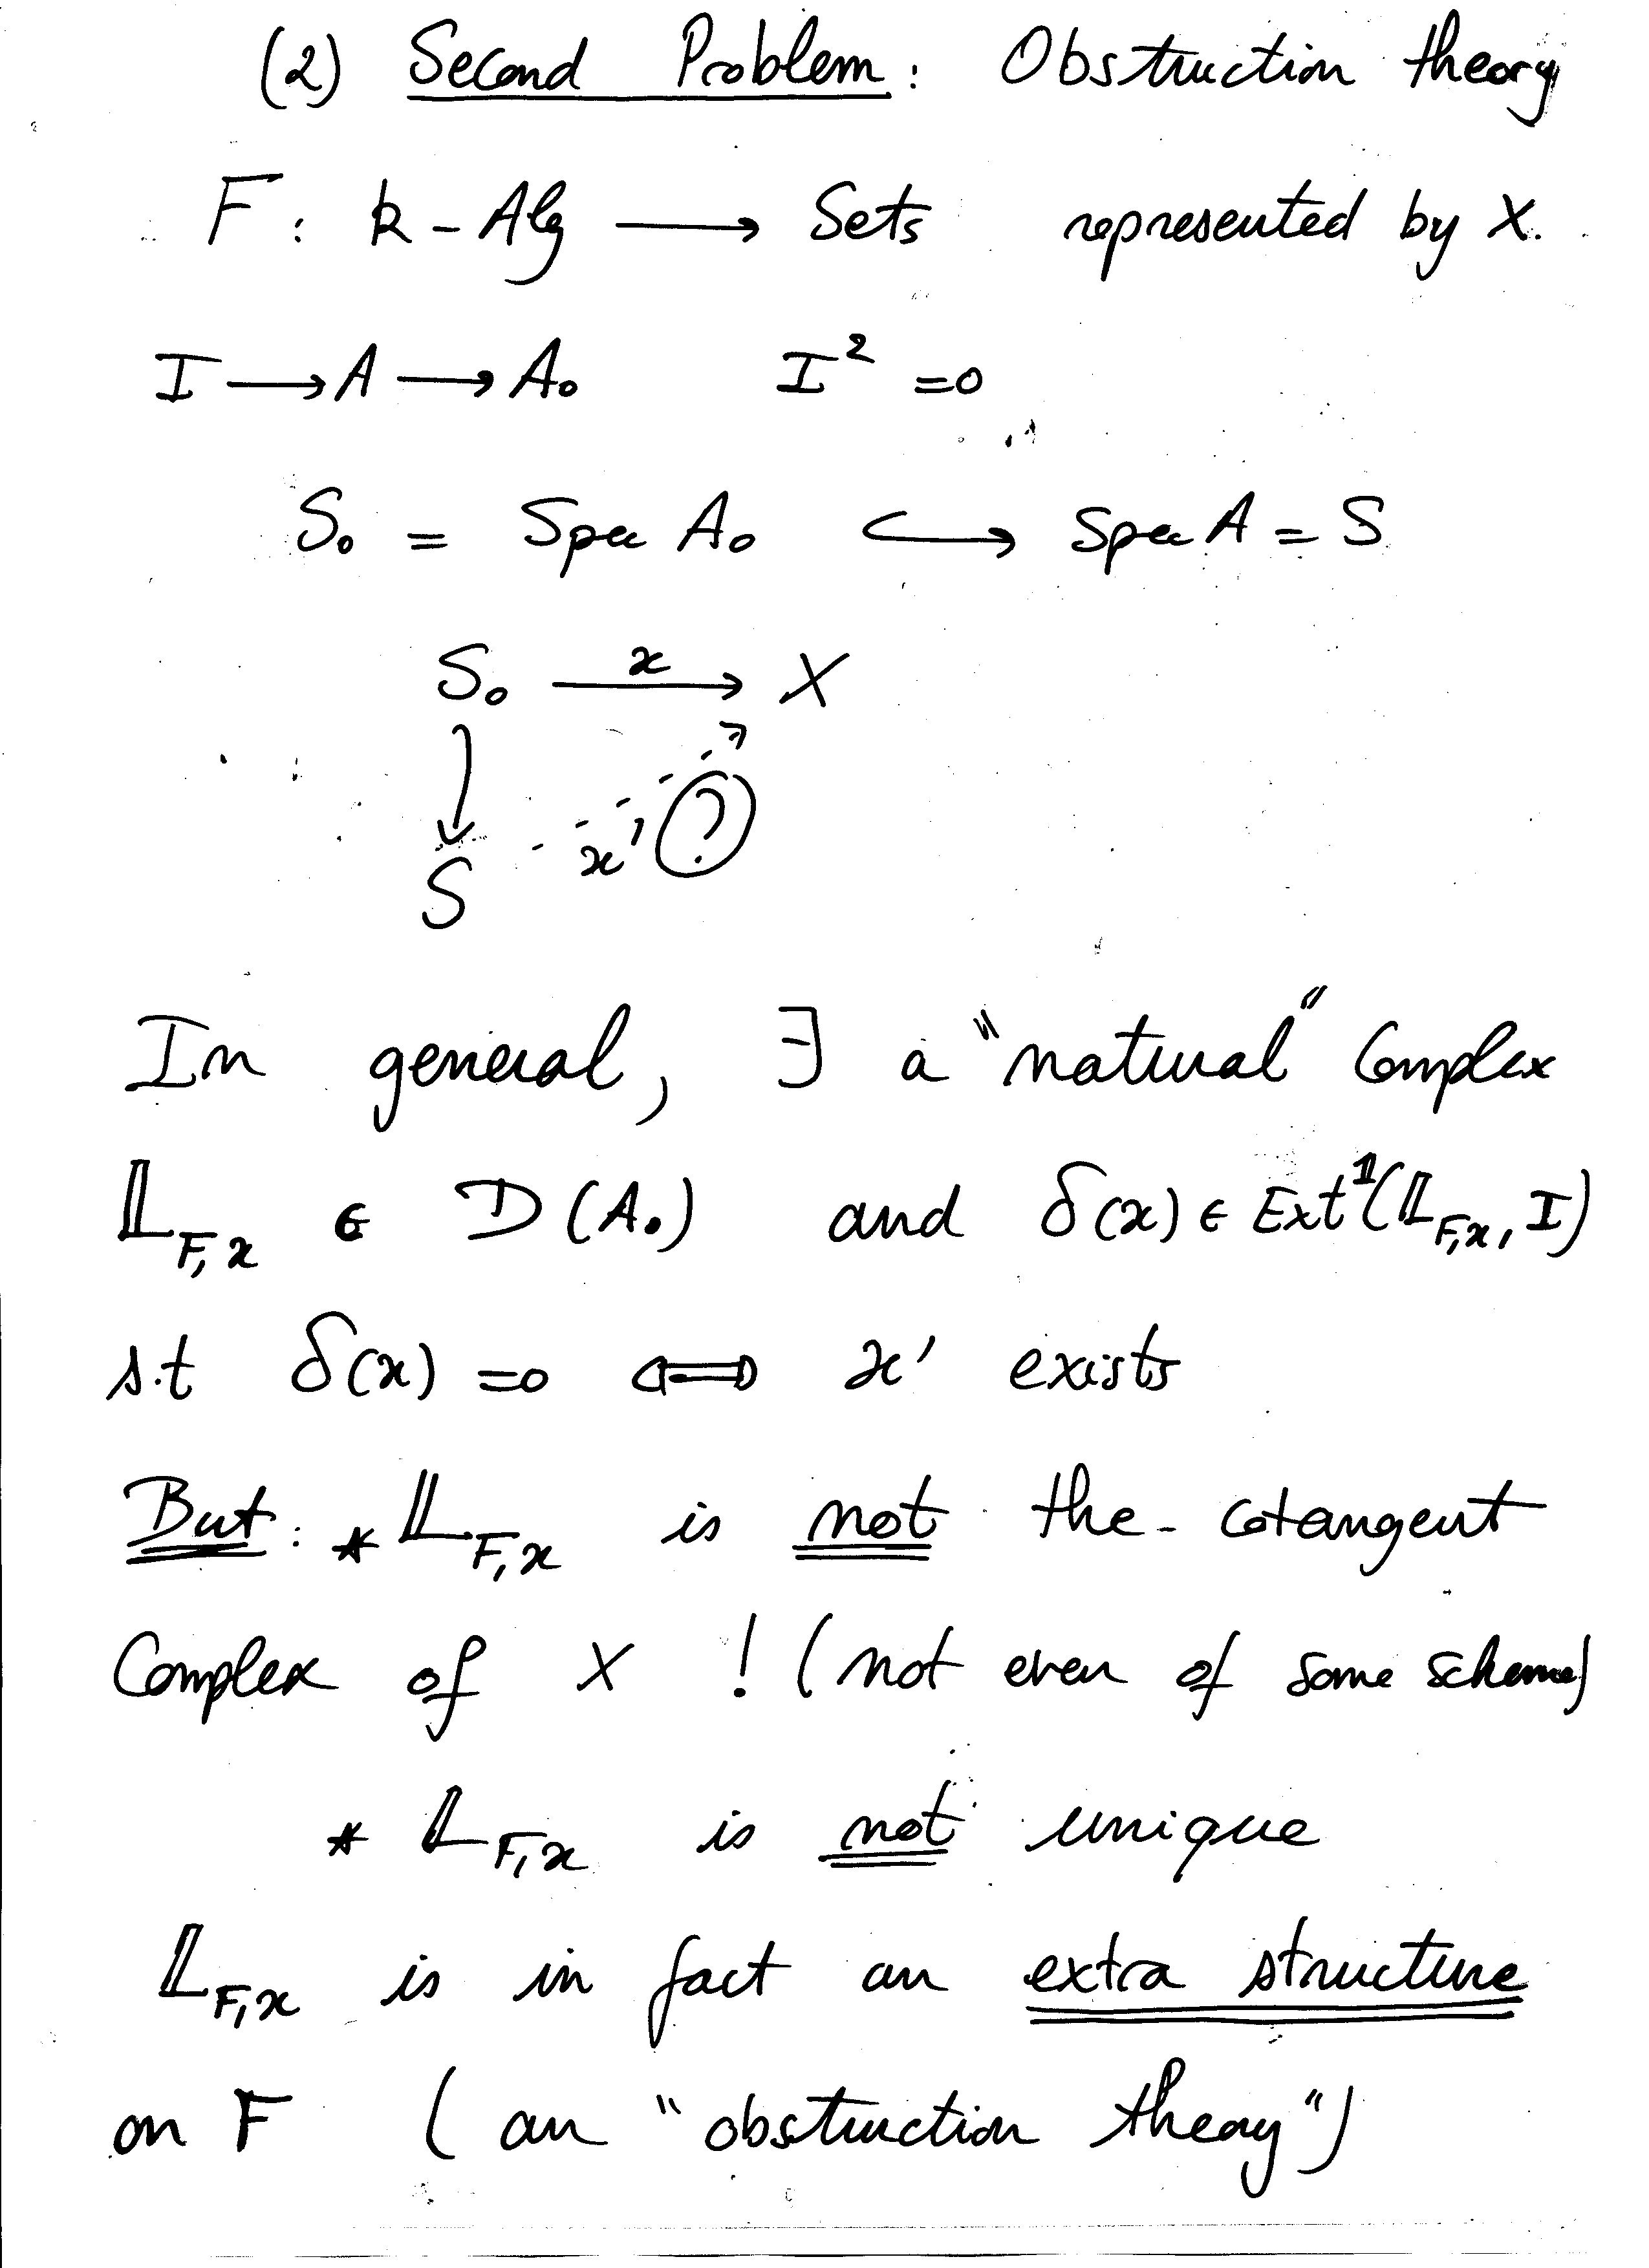 (2) Second Problem: Obstruction theory
F: k-Alg ⟶ Sets represented by X.
I ⟶ A ⟶ A₀ I² =0
S₀ = Spec A₀ ↪ Spec A = S
S₀ ⟶ X
x
↓
x' ?
S
In general, ∃ a "natural" complex
𝕃_{F,x} ∈ D(A₀) and δ(x) ∈ Ext¹(𝕃_{F,x}, I)
s.t δ(x) =0 ⟺ x' exists
But: * 𝕃_{F,x} is not the cotangent
Complex of X ! (not even of some scheme)
* 𝕃_{F,x} is not unique
𝕃_{F,x} is in fact an extra structure
on F (an "obstruction theory")